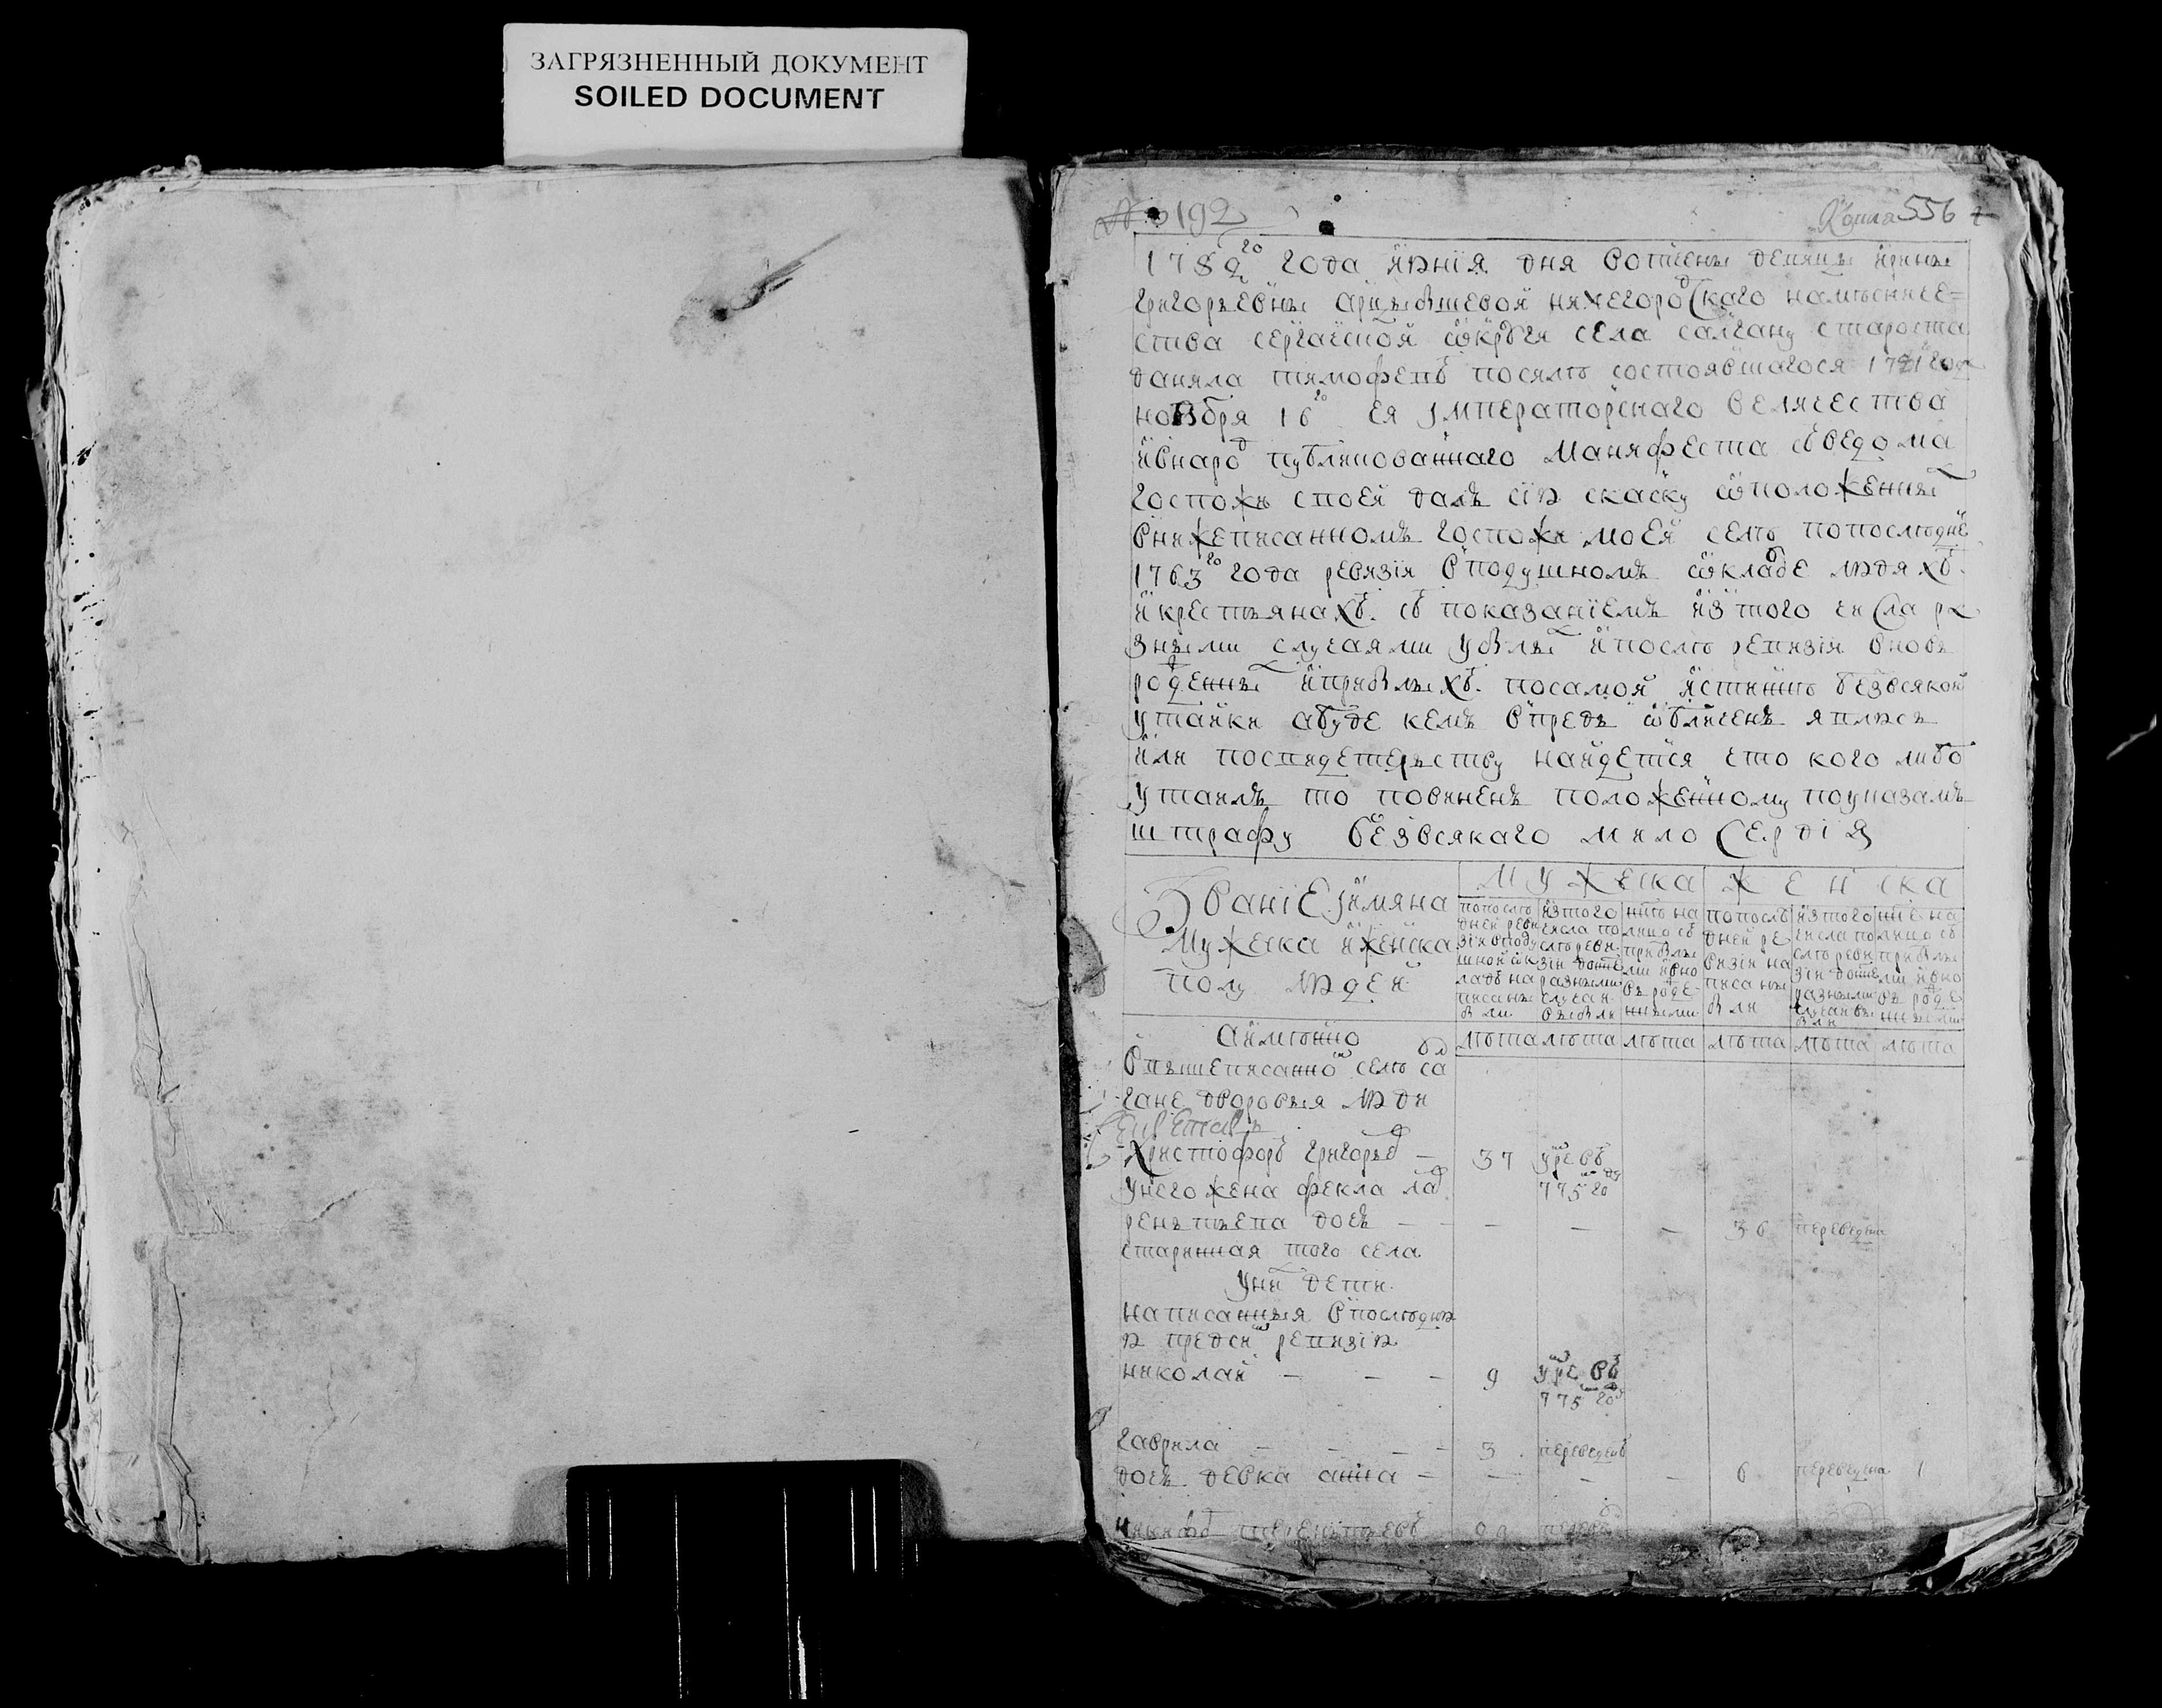 ЗАГРЯЗНЕННЫЙ ДОКУМЕНТ
SOILED DOCUMENT
№ 192
Копия 556
1782го года июнія дня вотчены девицы ирины
григорьевны арцыбышевой нижегородскаго намѣсниче=
ства сергачской округи села салгану староста
данила тимофеевъ посилѣ состоявшагося 1781 года
ноября 16го ея императорскаго величества
ивнарод публикованнаго манифеста съведома
госпожи своей далъ сію скаску ѡположенных
внижеписанномъ госпожи моей селѣ попослѣдне
1763го года ревизіи вподушномъ ѡкладе людяхъ
икрестьянахъ съ показаніемъ изтого числа ра
зными случаями убылых ипослѣ ревизіи вновь
рожденных иприбылыхъ посамой истиннѣ безвсякой
утайки абуде кемъ впредь ѡбличенъ явлюсь
или посвидетельству найдется что кого либо
утаилъ то повиненъ положенному поуказамъ
штрафу безвсякаго милосердія
Званіе иимяна
мужеска иженска
полу людей
мужеска женска
попослѣ
дней реви
зіи вподу
шной ѡк
ладъ на
писаны
были
изтого
числа по
слѣ реви
зіи
разными
случаи
выбыли
ниѣ на
лицо съ
прибылы
ми ивно
вь рожде
нными
попослѣ
дней ре
визіи на
писаны
были
изтого
числа по
слѣ реви
зіи
разными
случаи вы
были
ниѣ на
лицо съ
прибылы
ми ивно
вь рожде
нными
Аимѣнно
лѣта лѣта лѣта лѣта лѣта лѣта
ввышеписанном селѣ сал
гане дворовыя люди
христофоръ григорьев — 37 умре въ
775 году
унего жена фекла лав
рентьева дочь — — — — 36 переведена
старинная того села
уних дети
написанныя впослѣднюю
пред сим ревизію
николай — — — 9 умре въ
775 году
гаврила — — — — 3 переведенъ
дочь девка анна — — — — 6 переведена